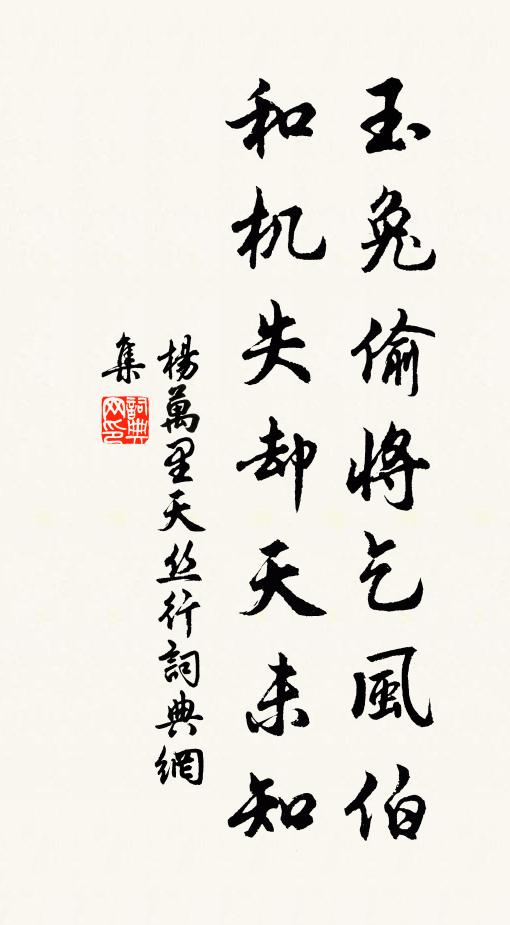 玉兔偷將乞風伯
和机失却天未知
楊萬里天丝行詞典網
集
詞典
网印